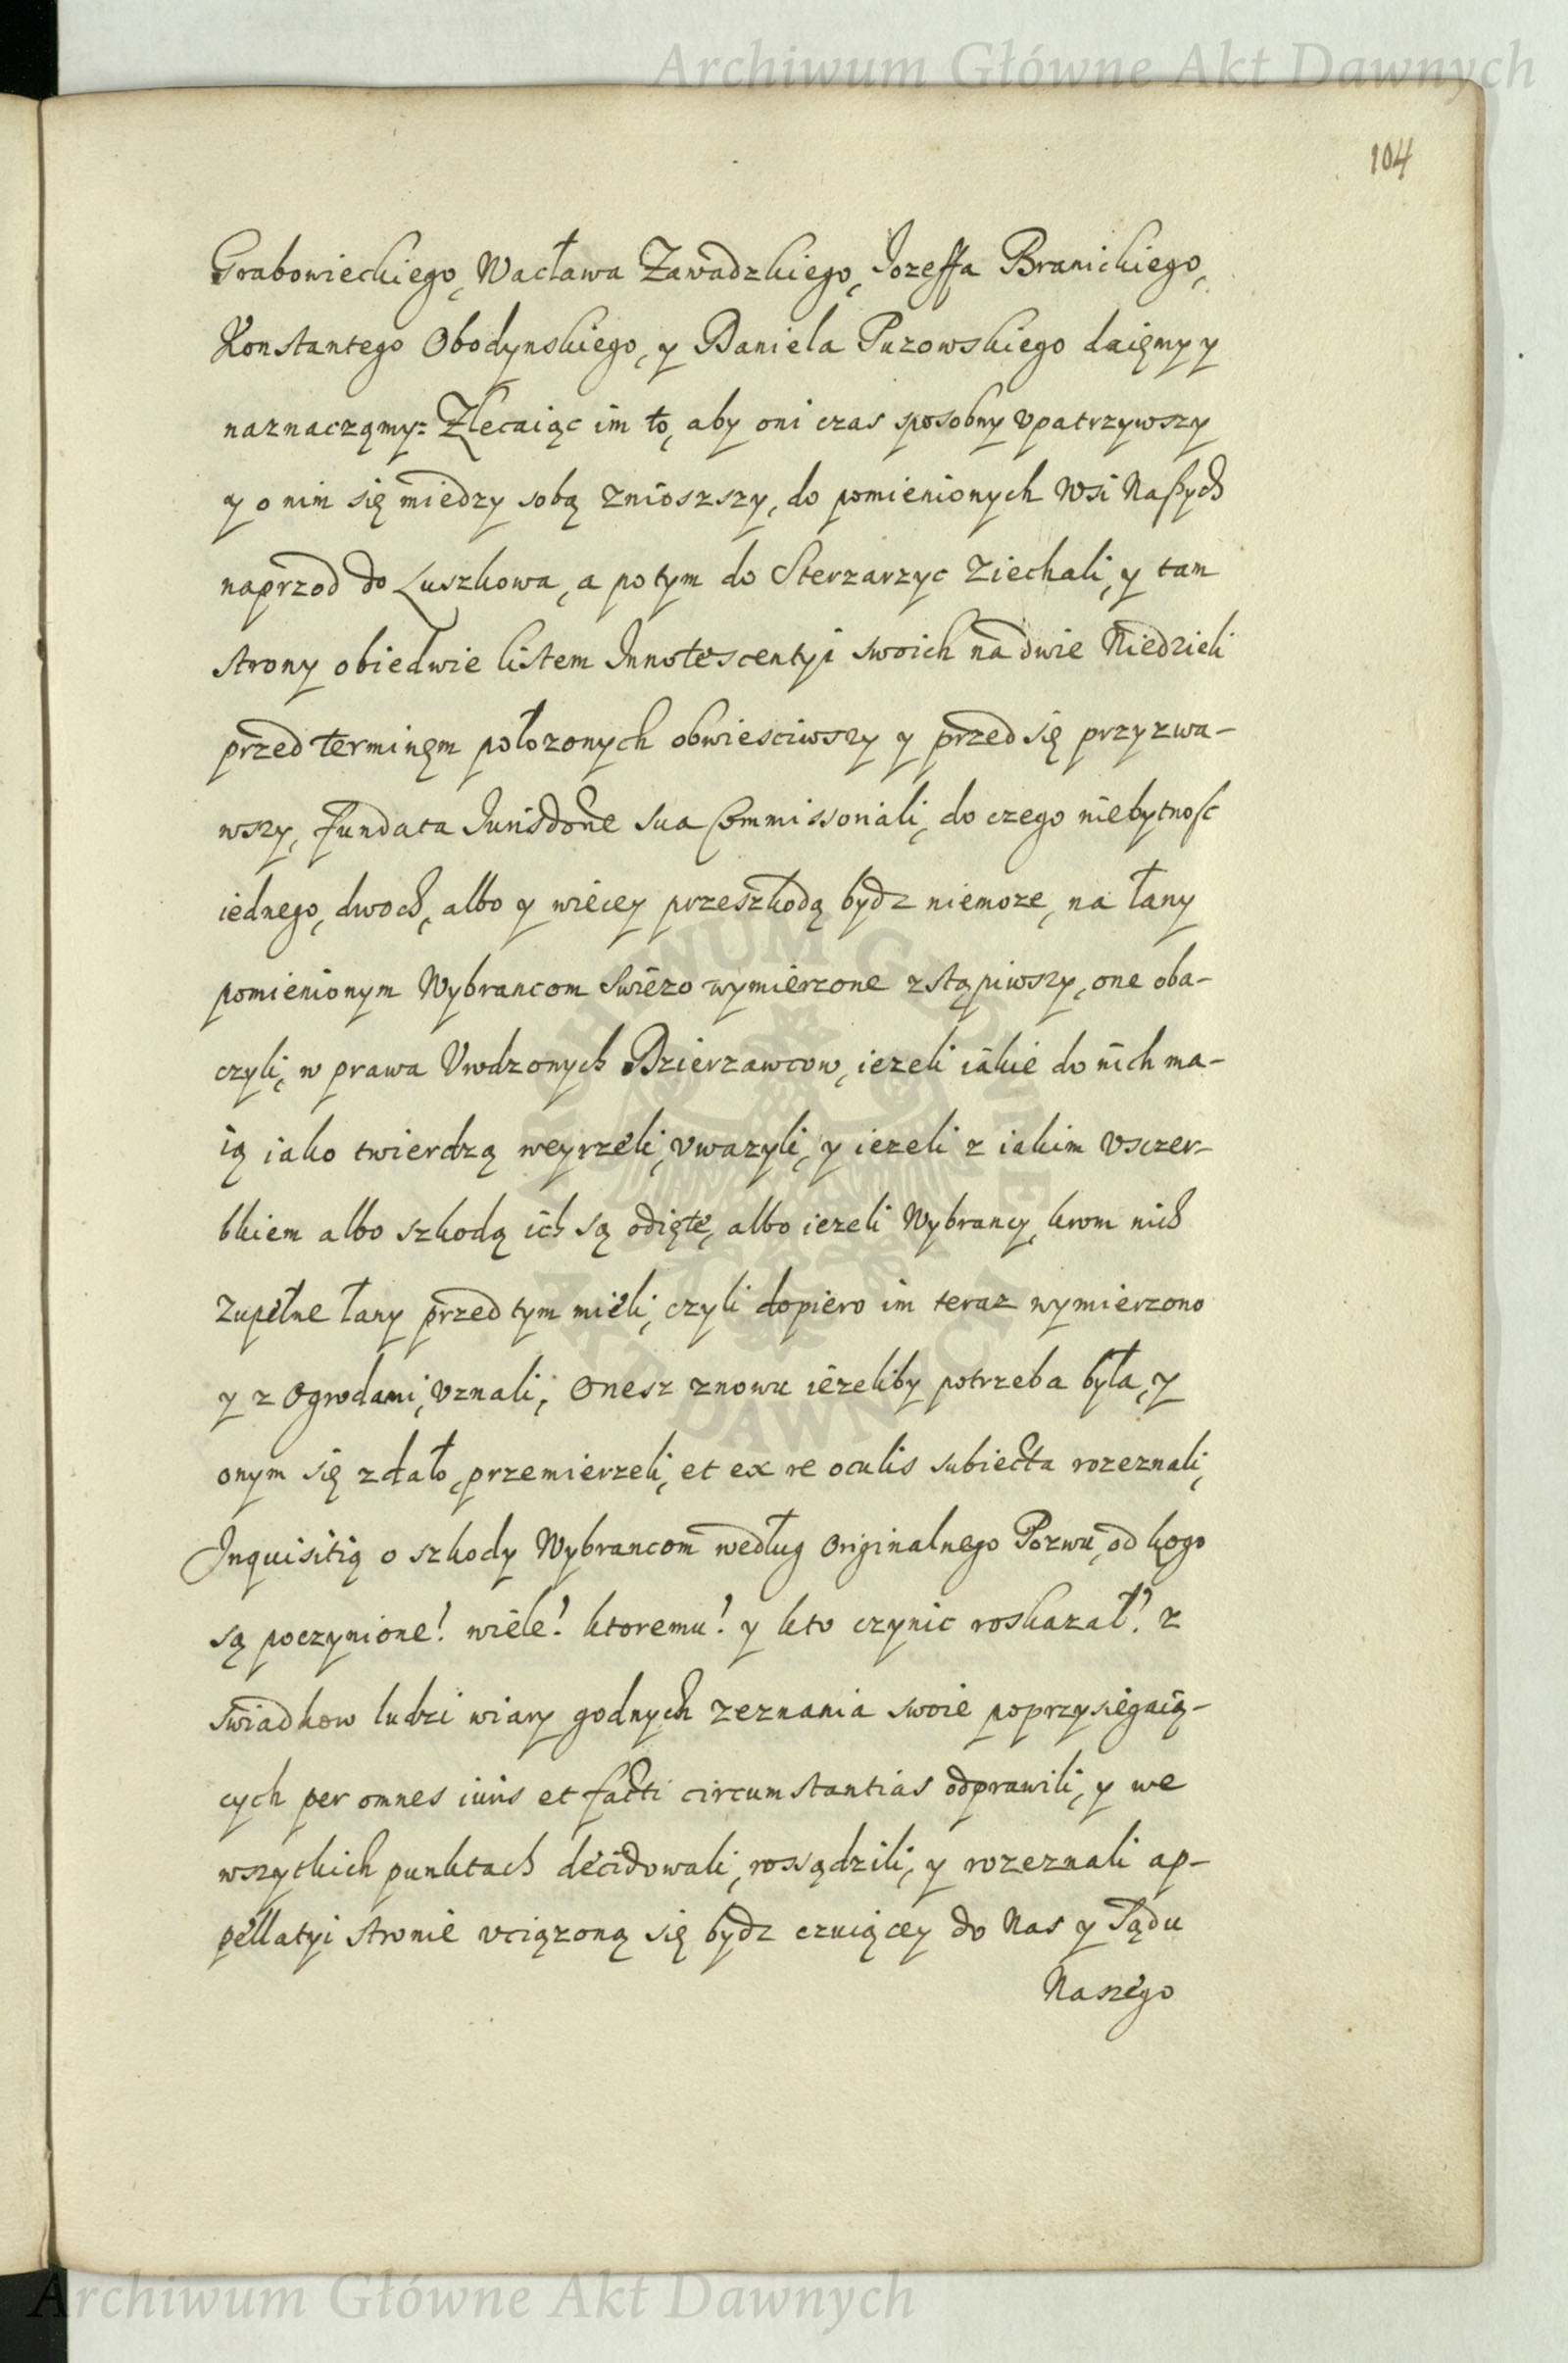 Archiwum Główne Akt Dawnych
104
Grabowieckiego, Wacława Zawadzkiego, Jozeffa Branickiego,
Konstantego Obodynskiego, y Daniela Puzowskiego daięmy y
naznaczęmy: Zlecaiąc im to, aby oni czas sposobny vpatrzywszy
y o nim się miedzy sobą znioszszy, do pomienionych Wsi Naszych
naprzod do Łuszkowa, a potym do Sterzarzyc Ziechali, y tam
strony obiedwie listem Innotescentyi swoich na dwie Niedzieli
przed terminęm położonych obwiesciwszy y przed się przyzwa-
wszy, fundata Jurisdone sua Commissoriali, do czego niebytnosc
iednego, dwoch, albo y wiecey przeszkodą bydz niemoze, na łany
pomienionym Wybrancom swiezo wymierzone zstąpiwszy, one oba-
czyli, w prawa Vrodzonych Dzierzawcow, iezeli iakie do nich ma-
ią iako twierdzą weyrzeli, vwazyli, y iezeli z iakim vsczer-
bkiem albo szkodą ich są odięte, albo iezeli Wybrancy, krom nich
zupełne łany przed tym mieli, czyli dopiero im teraz wymierzono
y z Ogrodami, vznali, Onesz znowu iezeliby potrzeba była, y
onym się zdało, przemierzeli, et ex re oculis subiecta rozeznali,
Inquisitią o szkody Wybrancom według Originalnego Pozwu, od kogo
są poczynione! wiele! ktoremu! y kto czynic roskazał! z
swiadkow ludzi wiary godnych zeznania swoie poprzysięgaią-
cych per omnes iuris et facti circumstantias odprawili, y we
wszytkich punktach decidowali, rossądzili, y rozeznali ap-
pellatyi stronie vciązoną się bydz czuiącey do Nas y Sądu
Naszego
Archiwum Główne Akt Dawnych